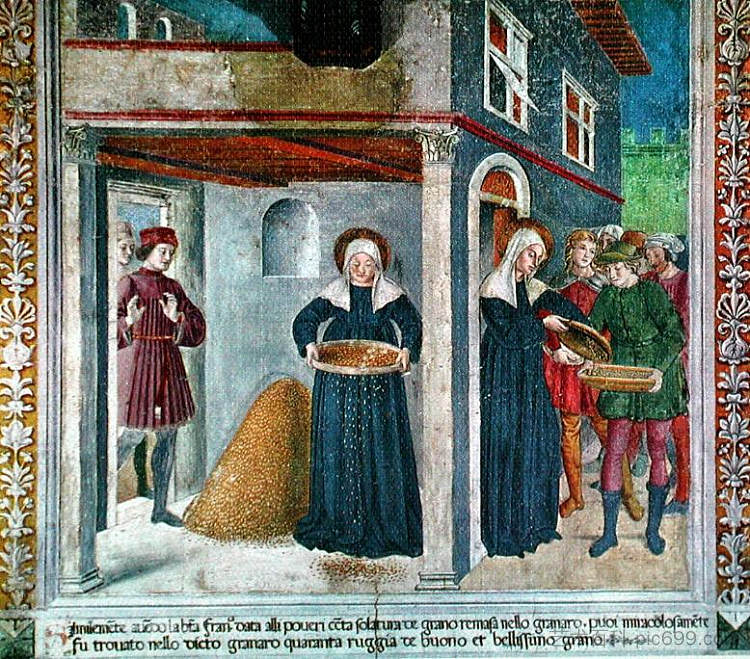 Similemẽte avẽdo la bt̃a Franc̃ᵃ data alli poveri cẽta solatura de grano remasa nello granaro, puoi miracolosamẽte
fu trovato nello dicto granaro quaranta ruggia de buono et bellissimo grano
pic699.com